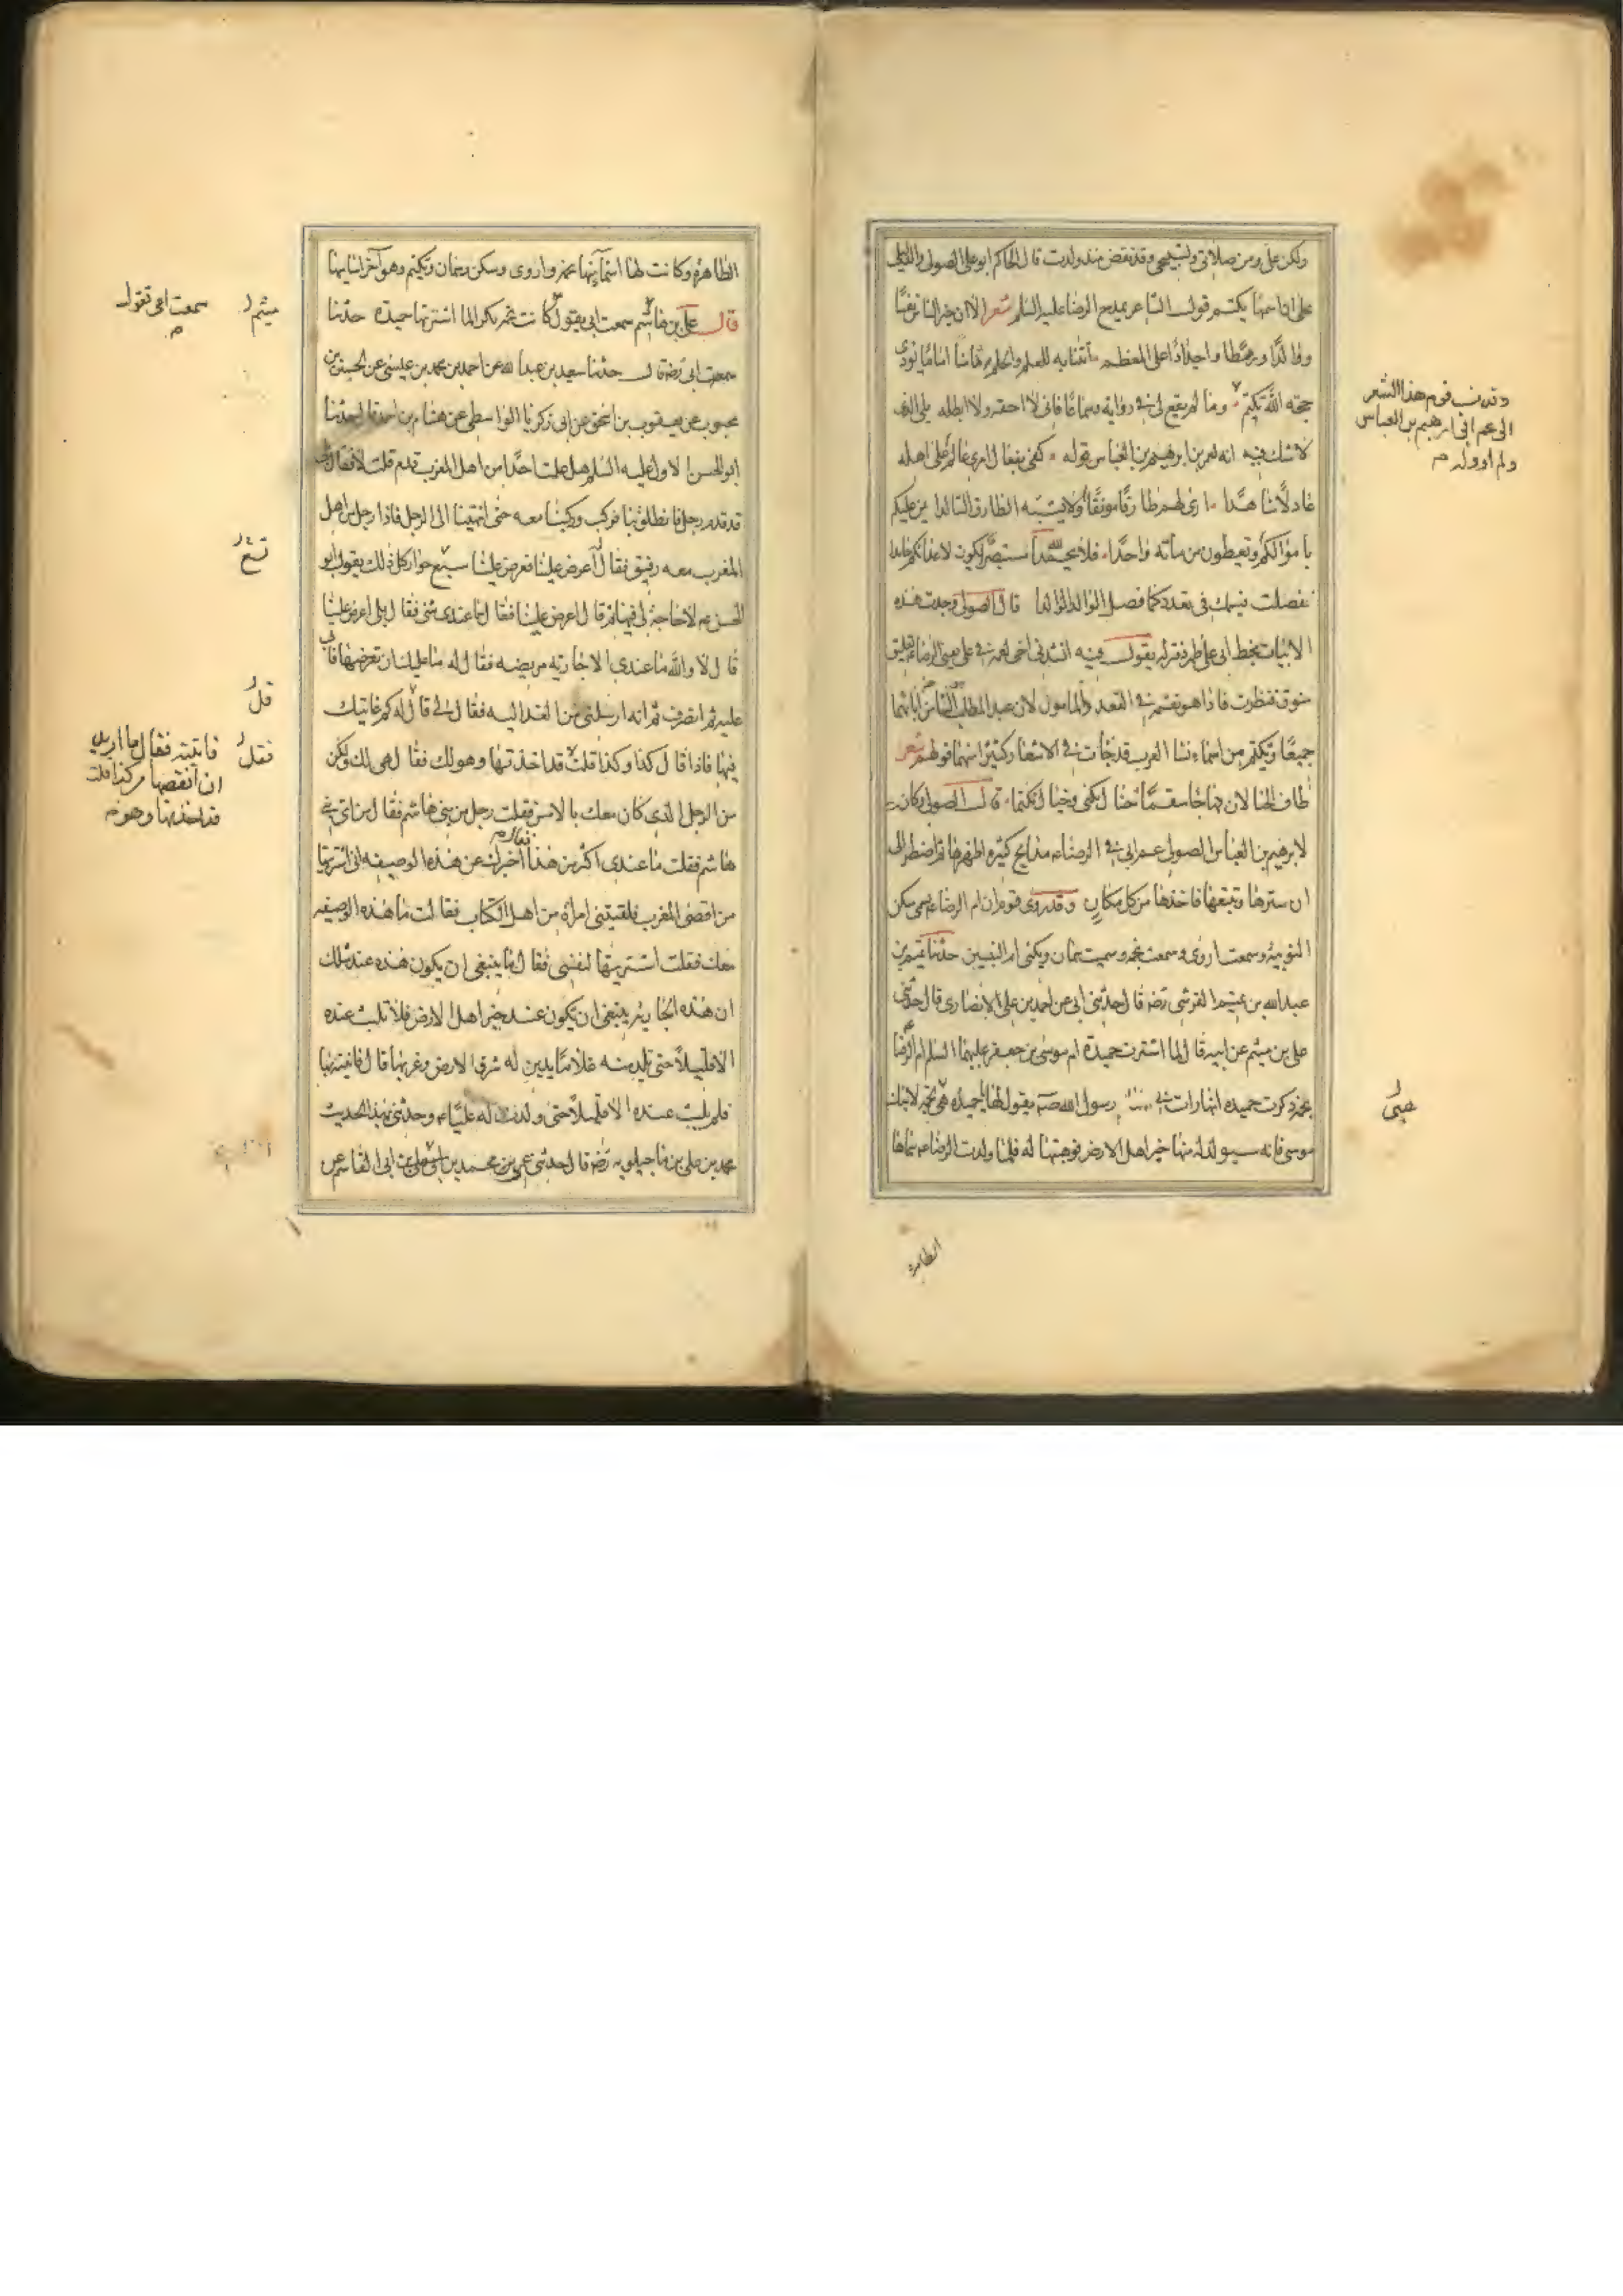 ولكن علي ورد من صلاتي وتسبيحي وقد نقص منذ ولدت قال الحاكم ابو علي قال الصولي والدليل
على ان اسمها تكتم قول الشاعر يمدح الرضا عليه السلم شعر الا ان خير الناس نفسا
ووالدا ورهطا واجدادا على المعظم اتتنا به للعلم والحلم ثامنا اماما يؤدى
حجة الله تكتم وما لم يقع لي في رواية وسماعا فاني لا احققه ولا ابطله بلى الذي
لا شك فيه انه لعم ابي ابرهيم بن العباس قوله كفى بفعال امرئ عالم على اهله
عادلا شاهدا ارى لهم طارقا مونقا ولا يشبه الطارق التالدا يمن عليكم
باموالكم وتعطون من مائة واحدا فلا يحمد الله مستبصر يكون لاعدائكم حامدا
فضلت قسيمك في قعدد كما فضل الوالد الوالدا قال الصولي وجدت هذه
الابيات بخط ابي على ظهر دفتر له يقول فيه انشدني اخي لعمه في علي يعني الرضا ء تعليق
متوق فنظرت فاذا هو بقسيمه في القعدد المأمون لان عبد المطلب هو الثامن من ابائهما
جميعا وتكتم من اسماء نسا العرب قد جات في الاشعار كثيرا منها قولهم شعر
طاف الخيا لان فهاجا سقما خيال تكنى وخيال تكتما قال الصولي وكانت
لابرهيم بن العباس الصولي عم ابي في الرضا ء مدايح كثيرة اظهرها ثم اضطر الى
ان سترها وتتبعها فاخذها من كل مكان وقد روى قوم ان ام الرضا ء تسمى سكن
النوبية وسميت اروى وسميت نجمه وسميت سمان وتكنى ام البنين حدثنا تميم بن
عبد الله بن تميم القرشي رضه قال حدثني ابي عن احمد بن علي الانصاري قال حدثني
علي بن ميثم عن ابيه قال لما اشترت حميدة ام موسى بن جعفر عليهما السلم ام الرضا
نجمه ذكرت حميده انها رات في رسول الله صه يقول لها يا حميده هي نجمه لابنك
موسى فانه سيولد له منها خير اهل الارض فوهبتها له فلما ولدت الرضا ء سماها
وقد نسب قوم هذا الشعر
الى عم ابي ابرهيم بن العباس
ولم اروه له م
هبى
الطاهرة
الطاهرة وكانت لها اسماء منها نجمه واروى وسكن وسمان وتكتم وهو آخر اساميها
قال علي بن ميثم سمعت ابي يقول كانت نجمه بكرا لما اشترتها حميدة حدثنا
سمعت ابي رضه قال حدثنا سعد بن عبد الله عن احمد بن محمد بن عيسى عن الحسن بن
محبوب عن يعقوب بن اسحق عن ابي زكريا الواسطي عن هشام بن احمد قال حدثنا
ابو الحسن الاول عليه السلم هل علمت احدا من اهل المغرب قدم قلت لا فقال بلى
قد قدم رجل فانطلق بنا فركب وركبنا معه حتى انتهينا الى الرجل فاذا رجل من اهل
المغرب معه رقيق فقال له اعرض علينا فعرض علينا سبع جوار كل ذلك يقول ابو
الحسن ء لا حاجة لي فيها ثم قال اعرض علينا فقال ما عندي شئ فقال بلى اعرض علينا
قال لا والله ما عندي الا جارية مريضه فقال له ما عليك ان تعرضها فابى
عليه ثم انصرف ثم انه ارسلني من الغد اليه فقال لي قال له كم غايتك
فيها فاذا قال كذا وكذا قلت قد اخذتها وهو لك فقال هي لك ولكن
من الرجل الذي كان معك بالامس فقلت رجل من بني هاشم فقال من اي بني
هاشم فقلت ما عندي اكثر من هذا فقال م اخبرك عن هذه الوصيفه اني اشتريتها
من اقصى المغرب فلقيتني امراة من اهل الكتاب فقالت ما هذه الوصيفه
معك فقلت اشتريتها لنفسي فقال ما ينبغي ان يكون هذه عند مثلك
ان هذه الجارية ينبغي ان يكون عند خير اهل الارض فلا تلبث عنده
الا قليلا حتى تلد منه غلاما يدين له شرق الارض وغربها قال فاتيته بها
فلم يلبث عنده الا قليلا حتى ولدت له عليا ء وحدثني بهذا الحديث
محمد بن علي بن ماجيلويه رضه قال حدثني عمي محمد بن ابي القاسم عن
ميثم ل
سمعت امي تقول
م
تسع ل
قل ل
فقل ل
فاتيته فقال ما اريد
ان انقصها من كذا قلت
قد اخذتها وهو م